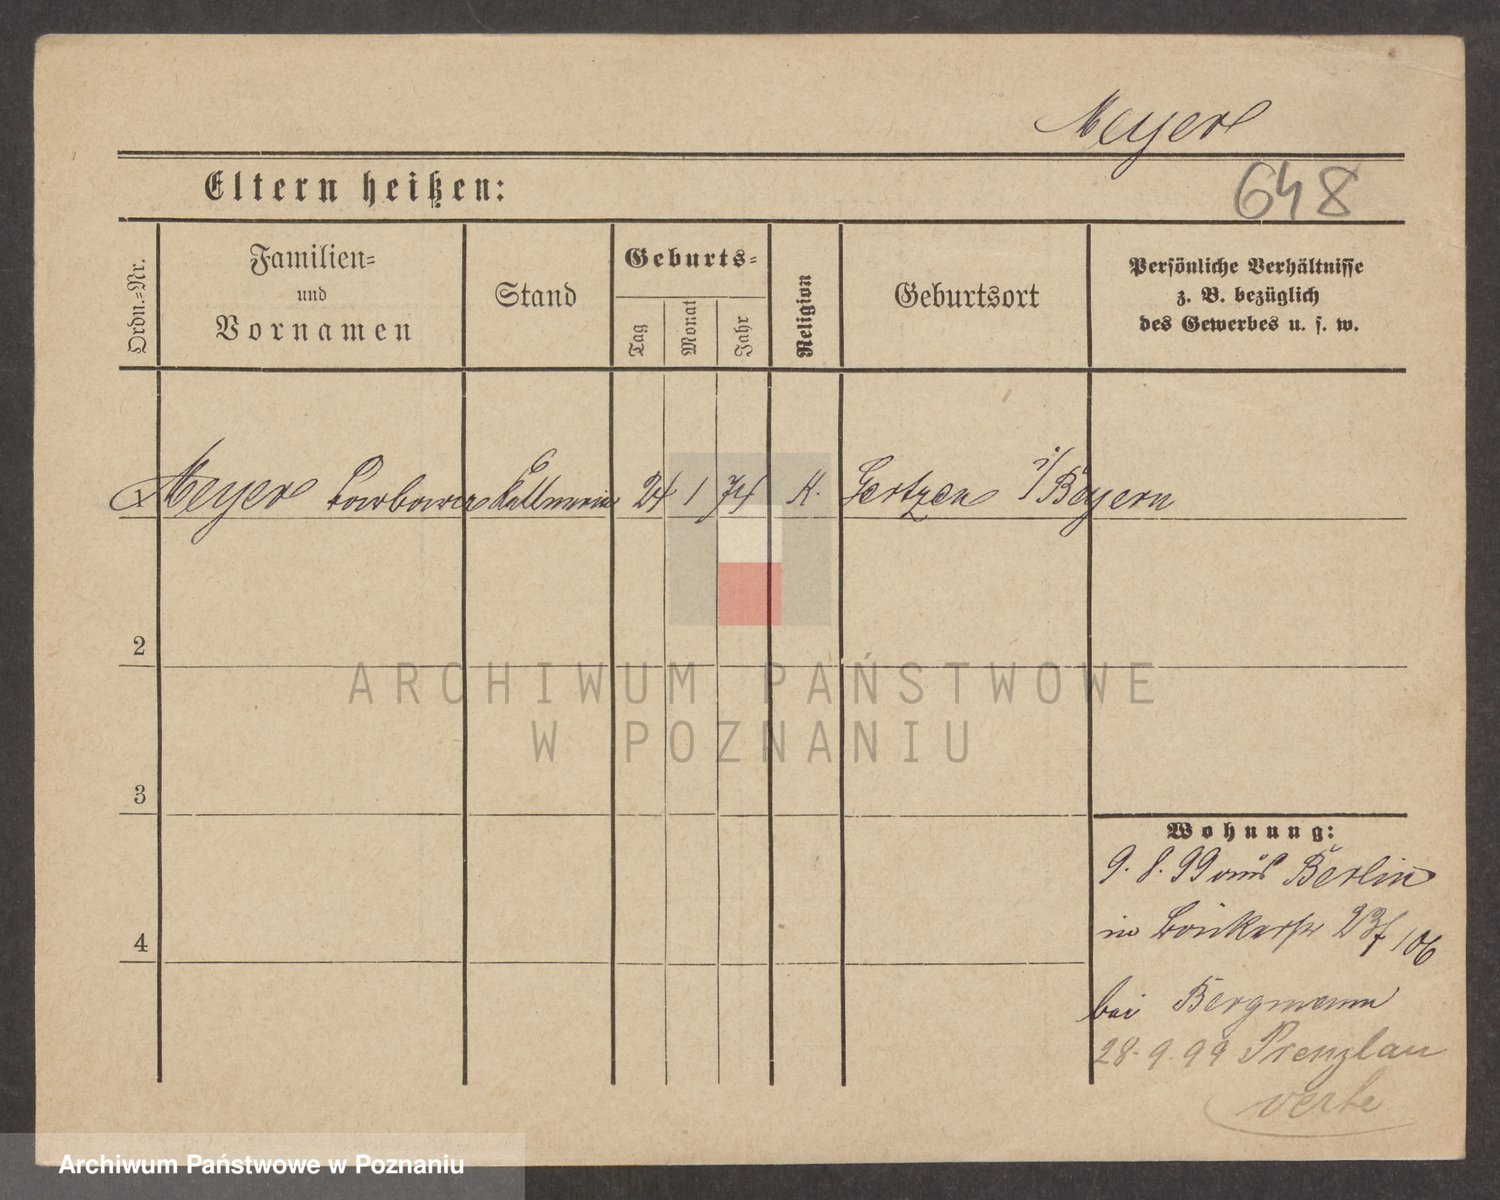 Meyer
648
Eltern heißen:
Ordn.-Nr.
Familien-
und
Vornamen
Stand
Geburts-
Tag
Monat
Jahr
Religion
Geburtsort
Persönliche Verhältnisse
z. B. bezüglich
des Gewerbes u. s. w.
1 Meyer Barbara Kellnerin 24 1 74 K. Gertzen i/Bayern
2
ARCHIWUM PAŃSTWOWE
W POZNANIU
3
Wohnung:
9. 8. 99 aus Berlin
in 23/106
4
bei Bergmann
28. 9. 99 Prenzlau
verte
Archiwum Państwowe w Poznaniu